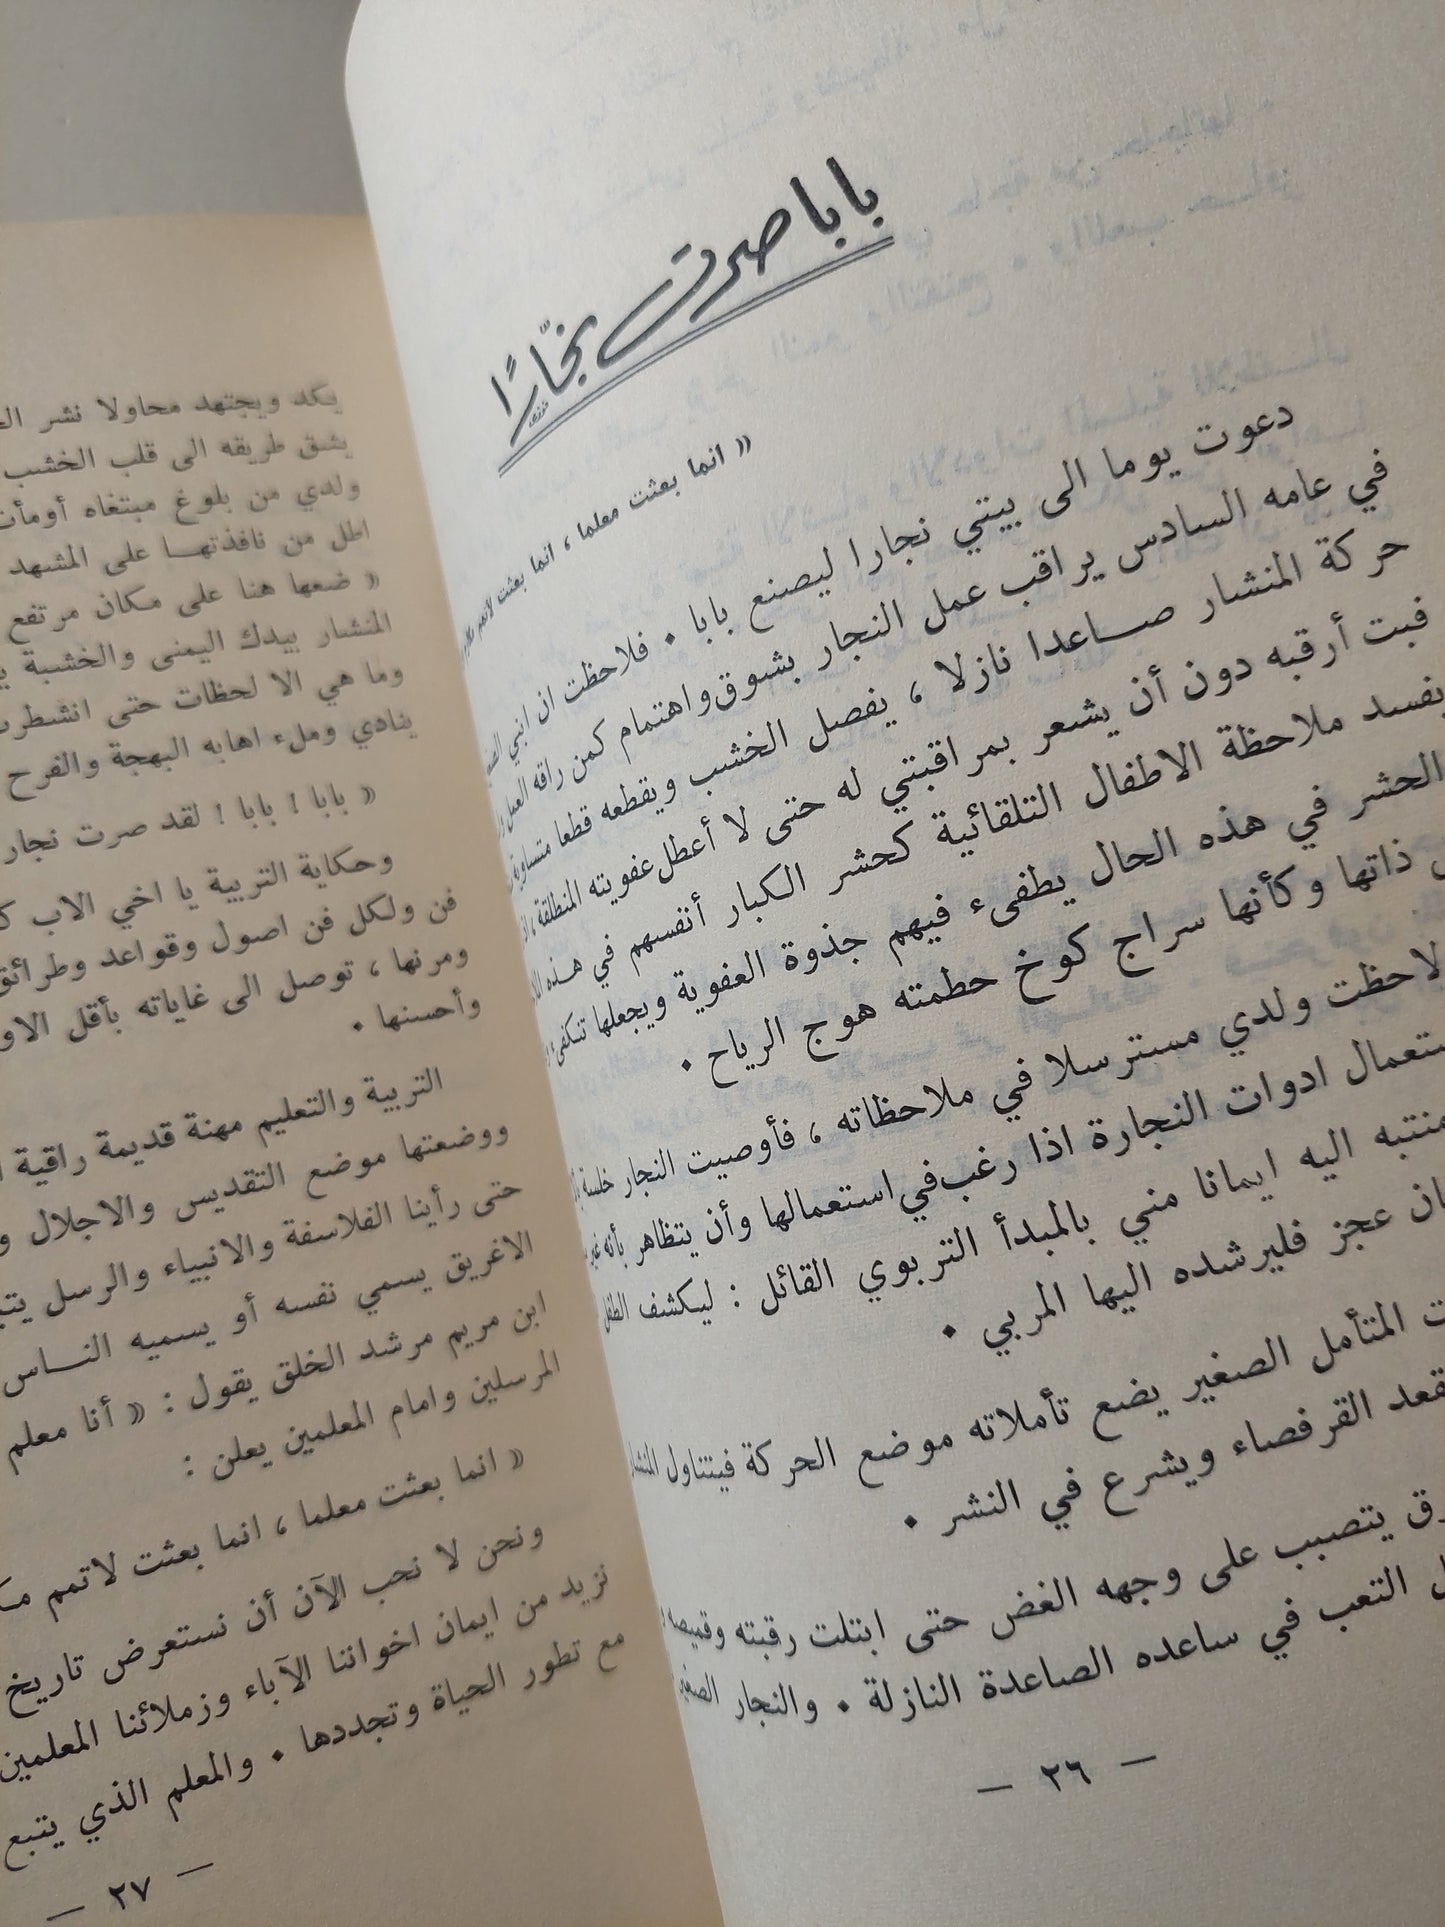 بابا صرت نجّارًا
« انما بعثت معلما ، انما بعثت لاتمم
دعوت يوما الى بيتي نجارا ليصنع بابا . فلاحظت ان ابني
في عامه السادس يراقب عمل النجار بشوق واهتمام كمن راقه العمل
حركة المنشار صاعدا نازلا ، يفصل الخشب ويقطعه قطعا متساوية
فبت أرقبه دون أن يشعر بمراقبتي له حتى لا أعطل عفويته المنطلقة ،
يفسد ملاحظة الاطفال التلقائية كحشر الكبار أنفسهم في هذه
الحشر في هذه الحال يطفىء فيهم جذوة العفوية ويجعلها تنكفىء
ذاتها وكأنها سراج كوخ حطمته هوج الرياح .
لاحظت ولدي مسترسلا في ملاحظاته ، فأوصيت النجار خلسة
ادوات النجارة اذا رغب في استعمالها وأن يتظاهر بأنه غير
منتبه اليه ايمانا مني بالمبدأ التربوي القائل : ليكشف الطفل
عجز فليرشده اليها المربي .
المتأمل الصغير يضع تأملاته موضع الحركة فيتناول المنشار
القرفصاء ويشرع في النشر .
يتصبب على وجهه الغض حتى ابتلت رقبته وقميصه
التعب في ساعده الصاعدة النازلة . والنجار الصغير
— ٢٦ —
يكد ويجتهد محاولا نشر
يشق طريقه الى قلب الخشب
ولدي من بلوغ مبتغاه أومأت
اطل من نافذتها على المشهد
« ضعها هنا على مكان مرتفع
المنشار بيدك اليمنى والخشبة
وما هي الا لحظات حتى انشطرت
ينادي وملء اهابه البهجة والفرح
« بابا ! بابا ! لقد صرت نجار
وحكاية التربية يا اخي الاب
فن ولكل فن اصول وقواعد وطرائق
ومرنها ، توصل الى غاياته بأقل
وأحسنها .
التربية والتعليم مهنة قديمة راقية
ووضعتها موضع التقديس والاجلال
حتى رأينا الفلاسفة والانبياء والرسل
الاغريق يسمي نفسه أو يسميه الناس
ابن مريم مرشد الخلق يقول : « أنا معلم
المرسلين وامام المعلمين يعلن :
« انما بعثت معلما ، انما بعثت لاتمم
ونحن لا نحب الآن أن نستعرض تاريخ
نزيد من ايمان اخواننا الآباء وزملائنا المعلمين
مع تطور الحياة وتجددها . والمعلم الذي يتبع
— ٢٧ —